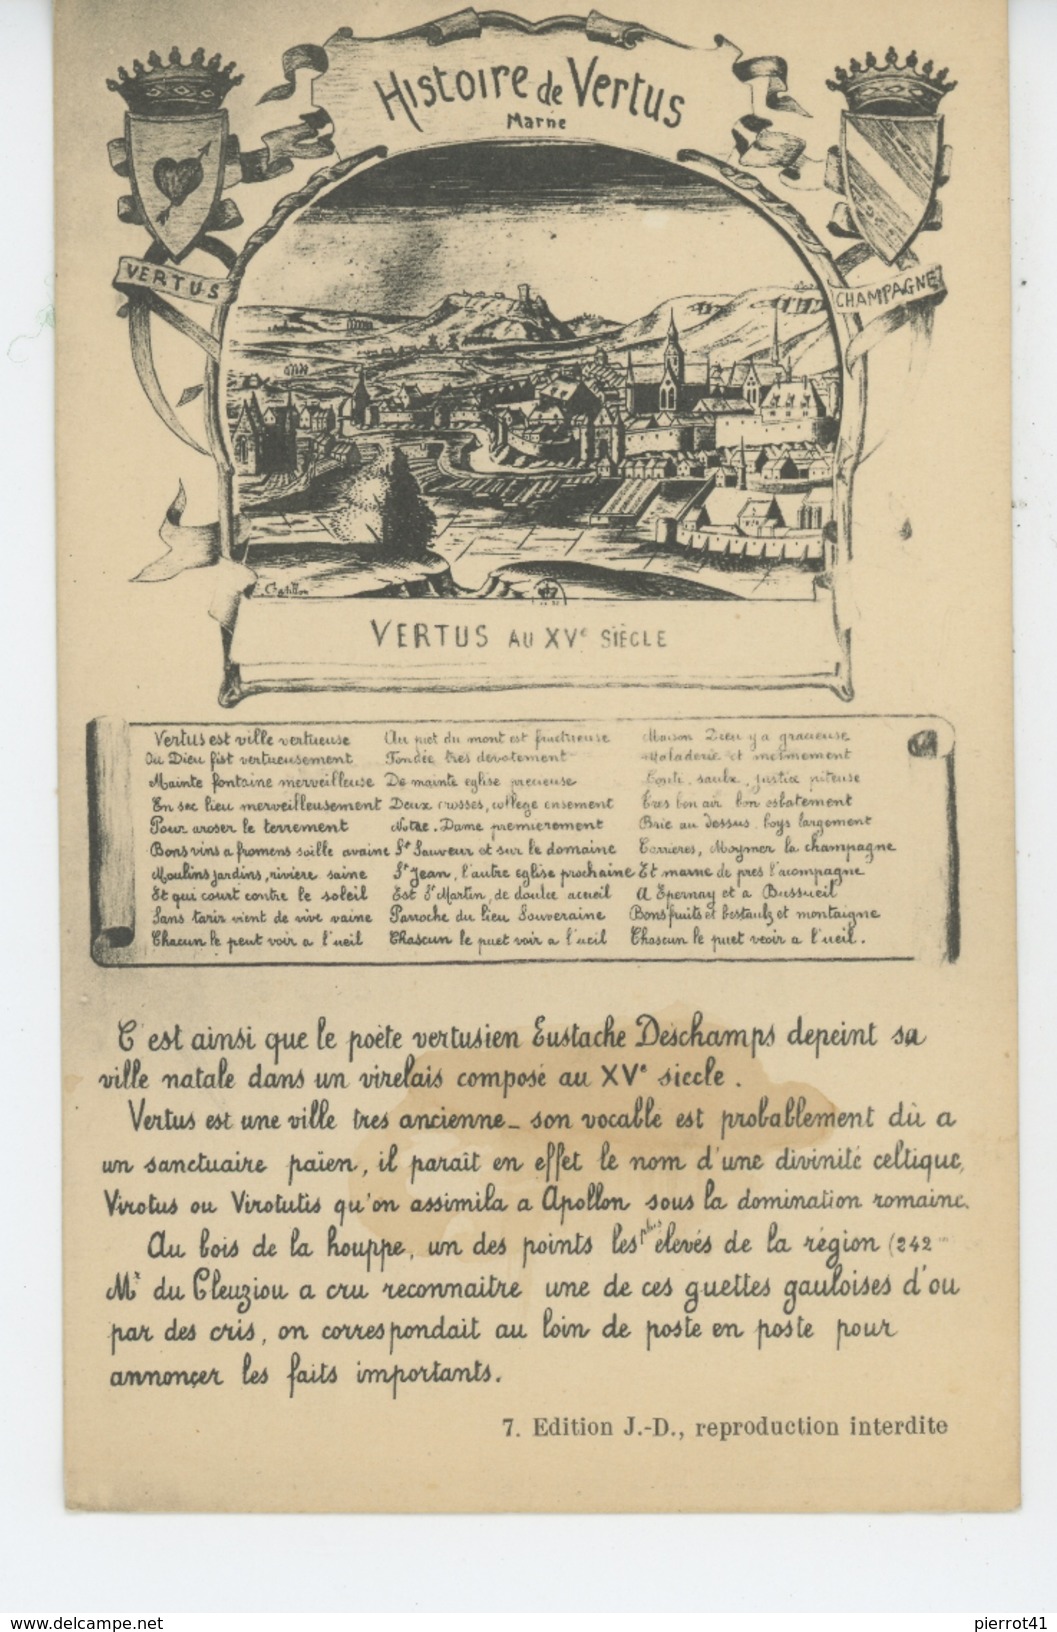 Histoire de Vertus
Marne
VERTUS
CHAMPAGNE
Chatillon
VERTUS AU XVe SIÈCLE
Vertus est ville vertueuse
Ou Dieu fist vertueusement
Mainte fontaine merveilleuse
En sec lieu merveilleusement
Pour aroser le terrement
Bons vins a fromens soille avaine
Moulins jardins, riviere saine
Et qui court contre le soleil
Sans tarir vient de vive vaine
Chacun le peut voir a l'ueil
Au piet du mont est fructueuse
Fondée tres devotement
De mainte eglise precieuse
Deux crosses, college ensement
Notre. Dame premierement
St Sauveur et sur le domaine
St Jean, l'autre eglise prochaine
Est St Martin, de doulce acueil
Parroche du lieu Souveraine
Chascun le puet voir a l'ueil
Maison Dieu y a gracieuse
Maladerie et mesmement
saulx, justice piteuse
Tres bon air bon esbatement
Brie au dessus, boys largement
Carrieres, Moymer la champagne
Et marne de pres l'acompagne
A Epernay et a Bussueil
Bons fruits et bestaulx et montaigne
Chascun le puet veoir a l'ueil.
C'est ainsi que le poète vertusien Eustache Deschamps depeint sa
ville natale dans un virelais composé au XVe siecle.
Vertus est une ville tres ancienne_ son vocable est probablement dû a
un sanctuaire païen, il paraît en effet le nom d'une divinité celtique,
Virotus ou Virotutis qu'on assimila a Apollon sous la domination romaine.
Au bois de la houppe, un des points les plus élevés de la région (242 m
Mr du Cleuziou a cru reconnaitre une de ces guettes gauloises d'ou
par des cris, on correspondait au loin de poste en poste pour
annonçer les faits importants.
7. Edition J.-D., reproduction interdite
www.delcampe.net
pierrot41